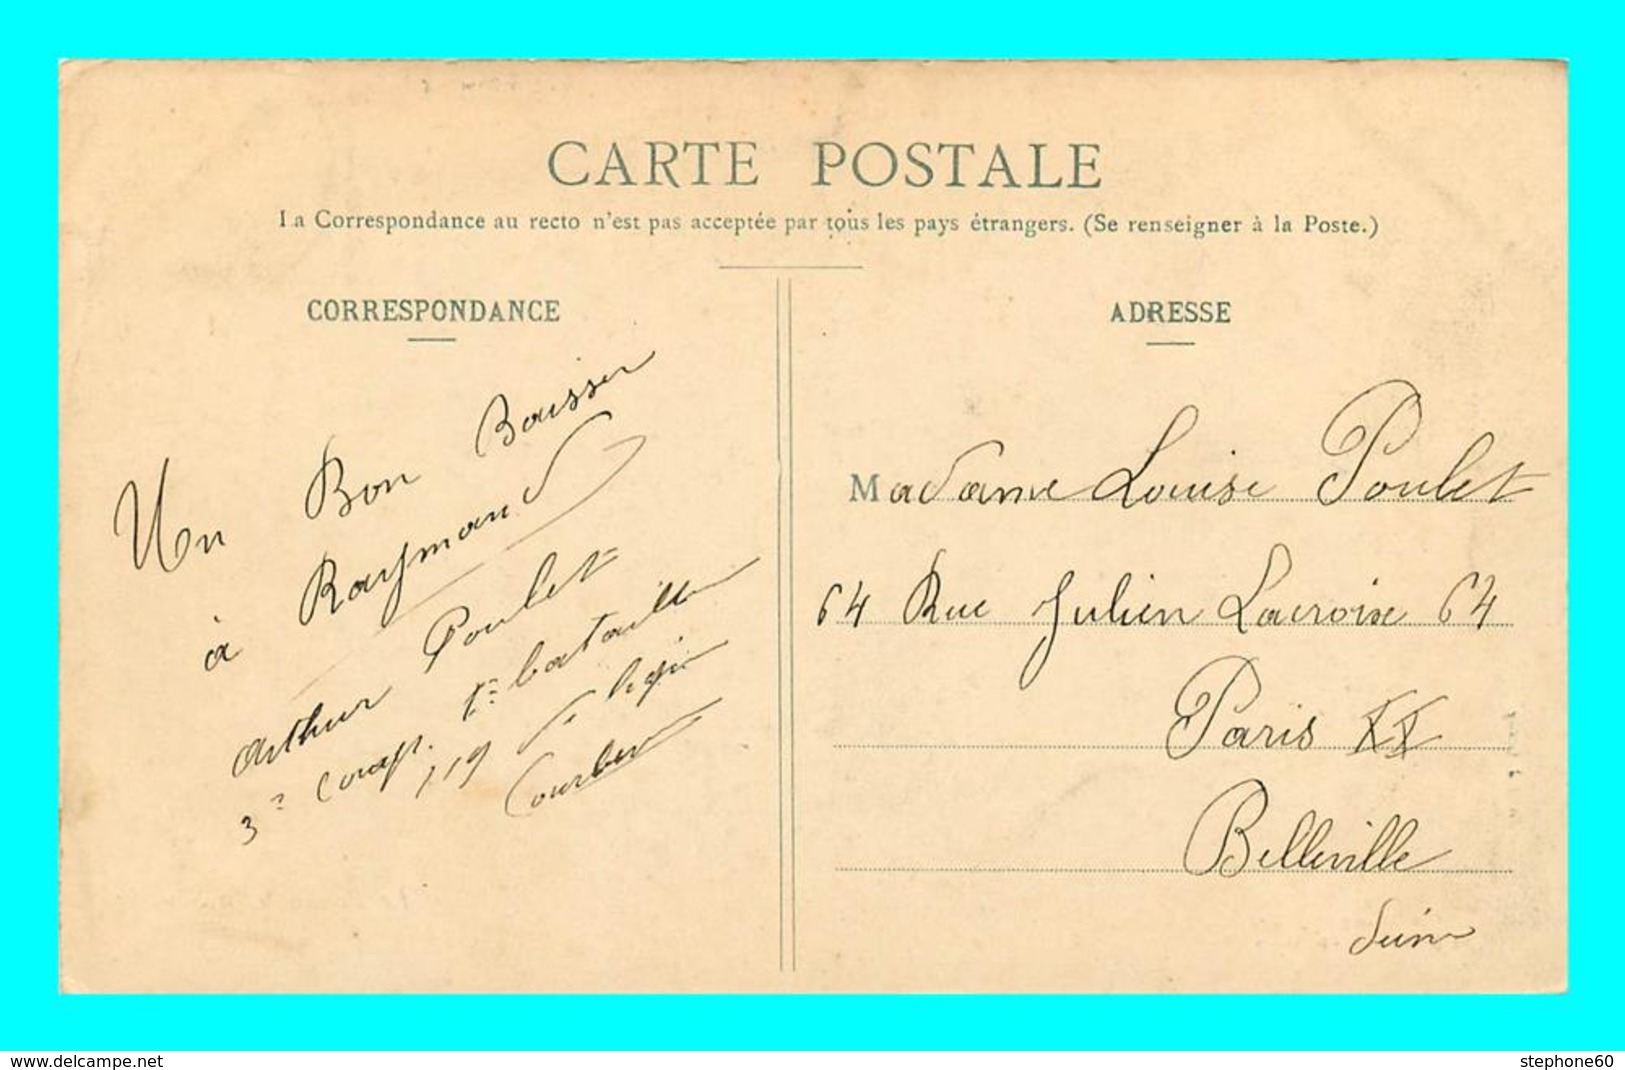 CARTE POSTALE
La Correspondance au recto n'est pas acceptée par tous les pays étrangers. (Se renseigner à la Poste.)
CORRESPONDANCE
Un Bon Baisser
à Raymond
Arthur Poulet
3e comp. 1er bataillon
119
Courbe
ADRESSE
Madame Louise Poulet
64 Rue Julien Lacroix 64
Paris XX
Belleville
Seine
www.delcampe.net
stephone60